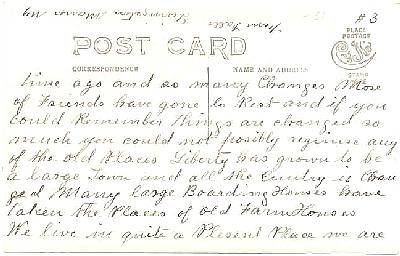 #3
Livingston Manor NY
Fern Falls
POST CARD
PLACE
POSTAGE
STAMP
CORRESPONDENCE
NAME AND ADDRESS
time ago and so many Changes Most
of Friends have gone to Rest and if you
Could Remember things are changed so
much you could not posibly reginise any
of the old Places Liberty has grown to be
a large Town and all the Cuntry is Chan
ged Many large Boarding Houses have
taken the Places of old Farm Houses
We live in quite a Plesent Place we are